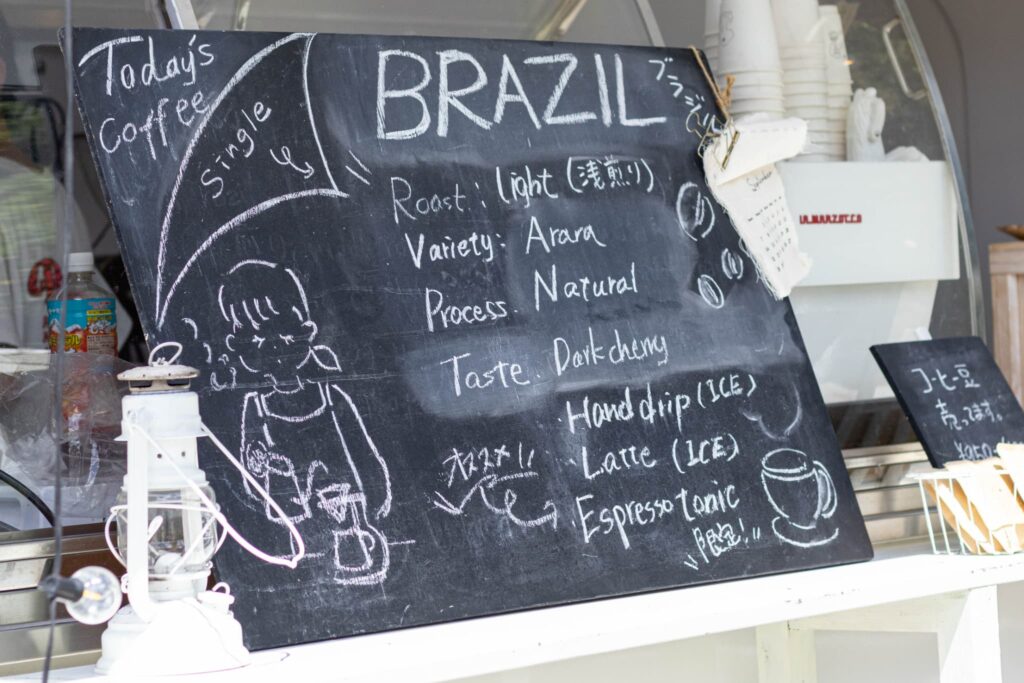 Today's
Coffee
Single
BRAZIL
ブラジル
Roast: light (浅煎り)
Variety: Arara
Process. Natural
Taste. Dark cherry
オススメ!!
Hand drip (ICE)
Latte (ICE)
Espresso tonic
限定!
LA MARZOCCO
コーヒー豆
売ってます。